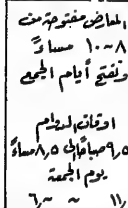 المعارض مفتوحة من
٨-١٠ مساءً
وتفتح أيام الجمع
اوقات الدوام
٩,٥ صباحاً إلى ٨,٥ مساءً
يوم الجمعة